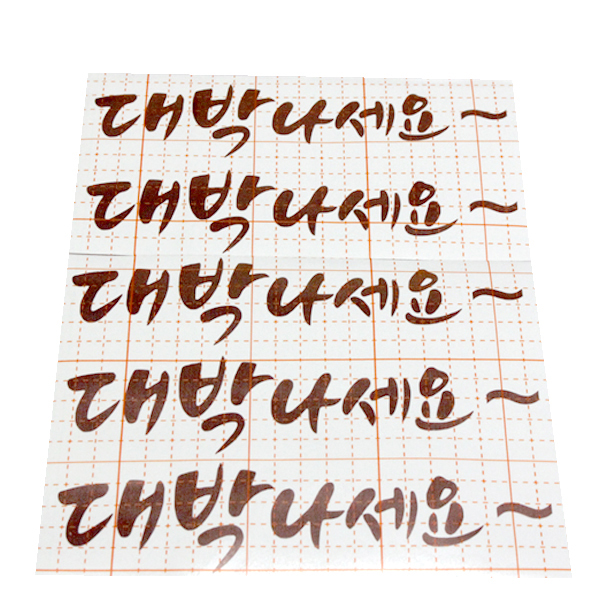 대박나세요~
대박나세요~
대박나세요~
대박나세요~
대박나세요~